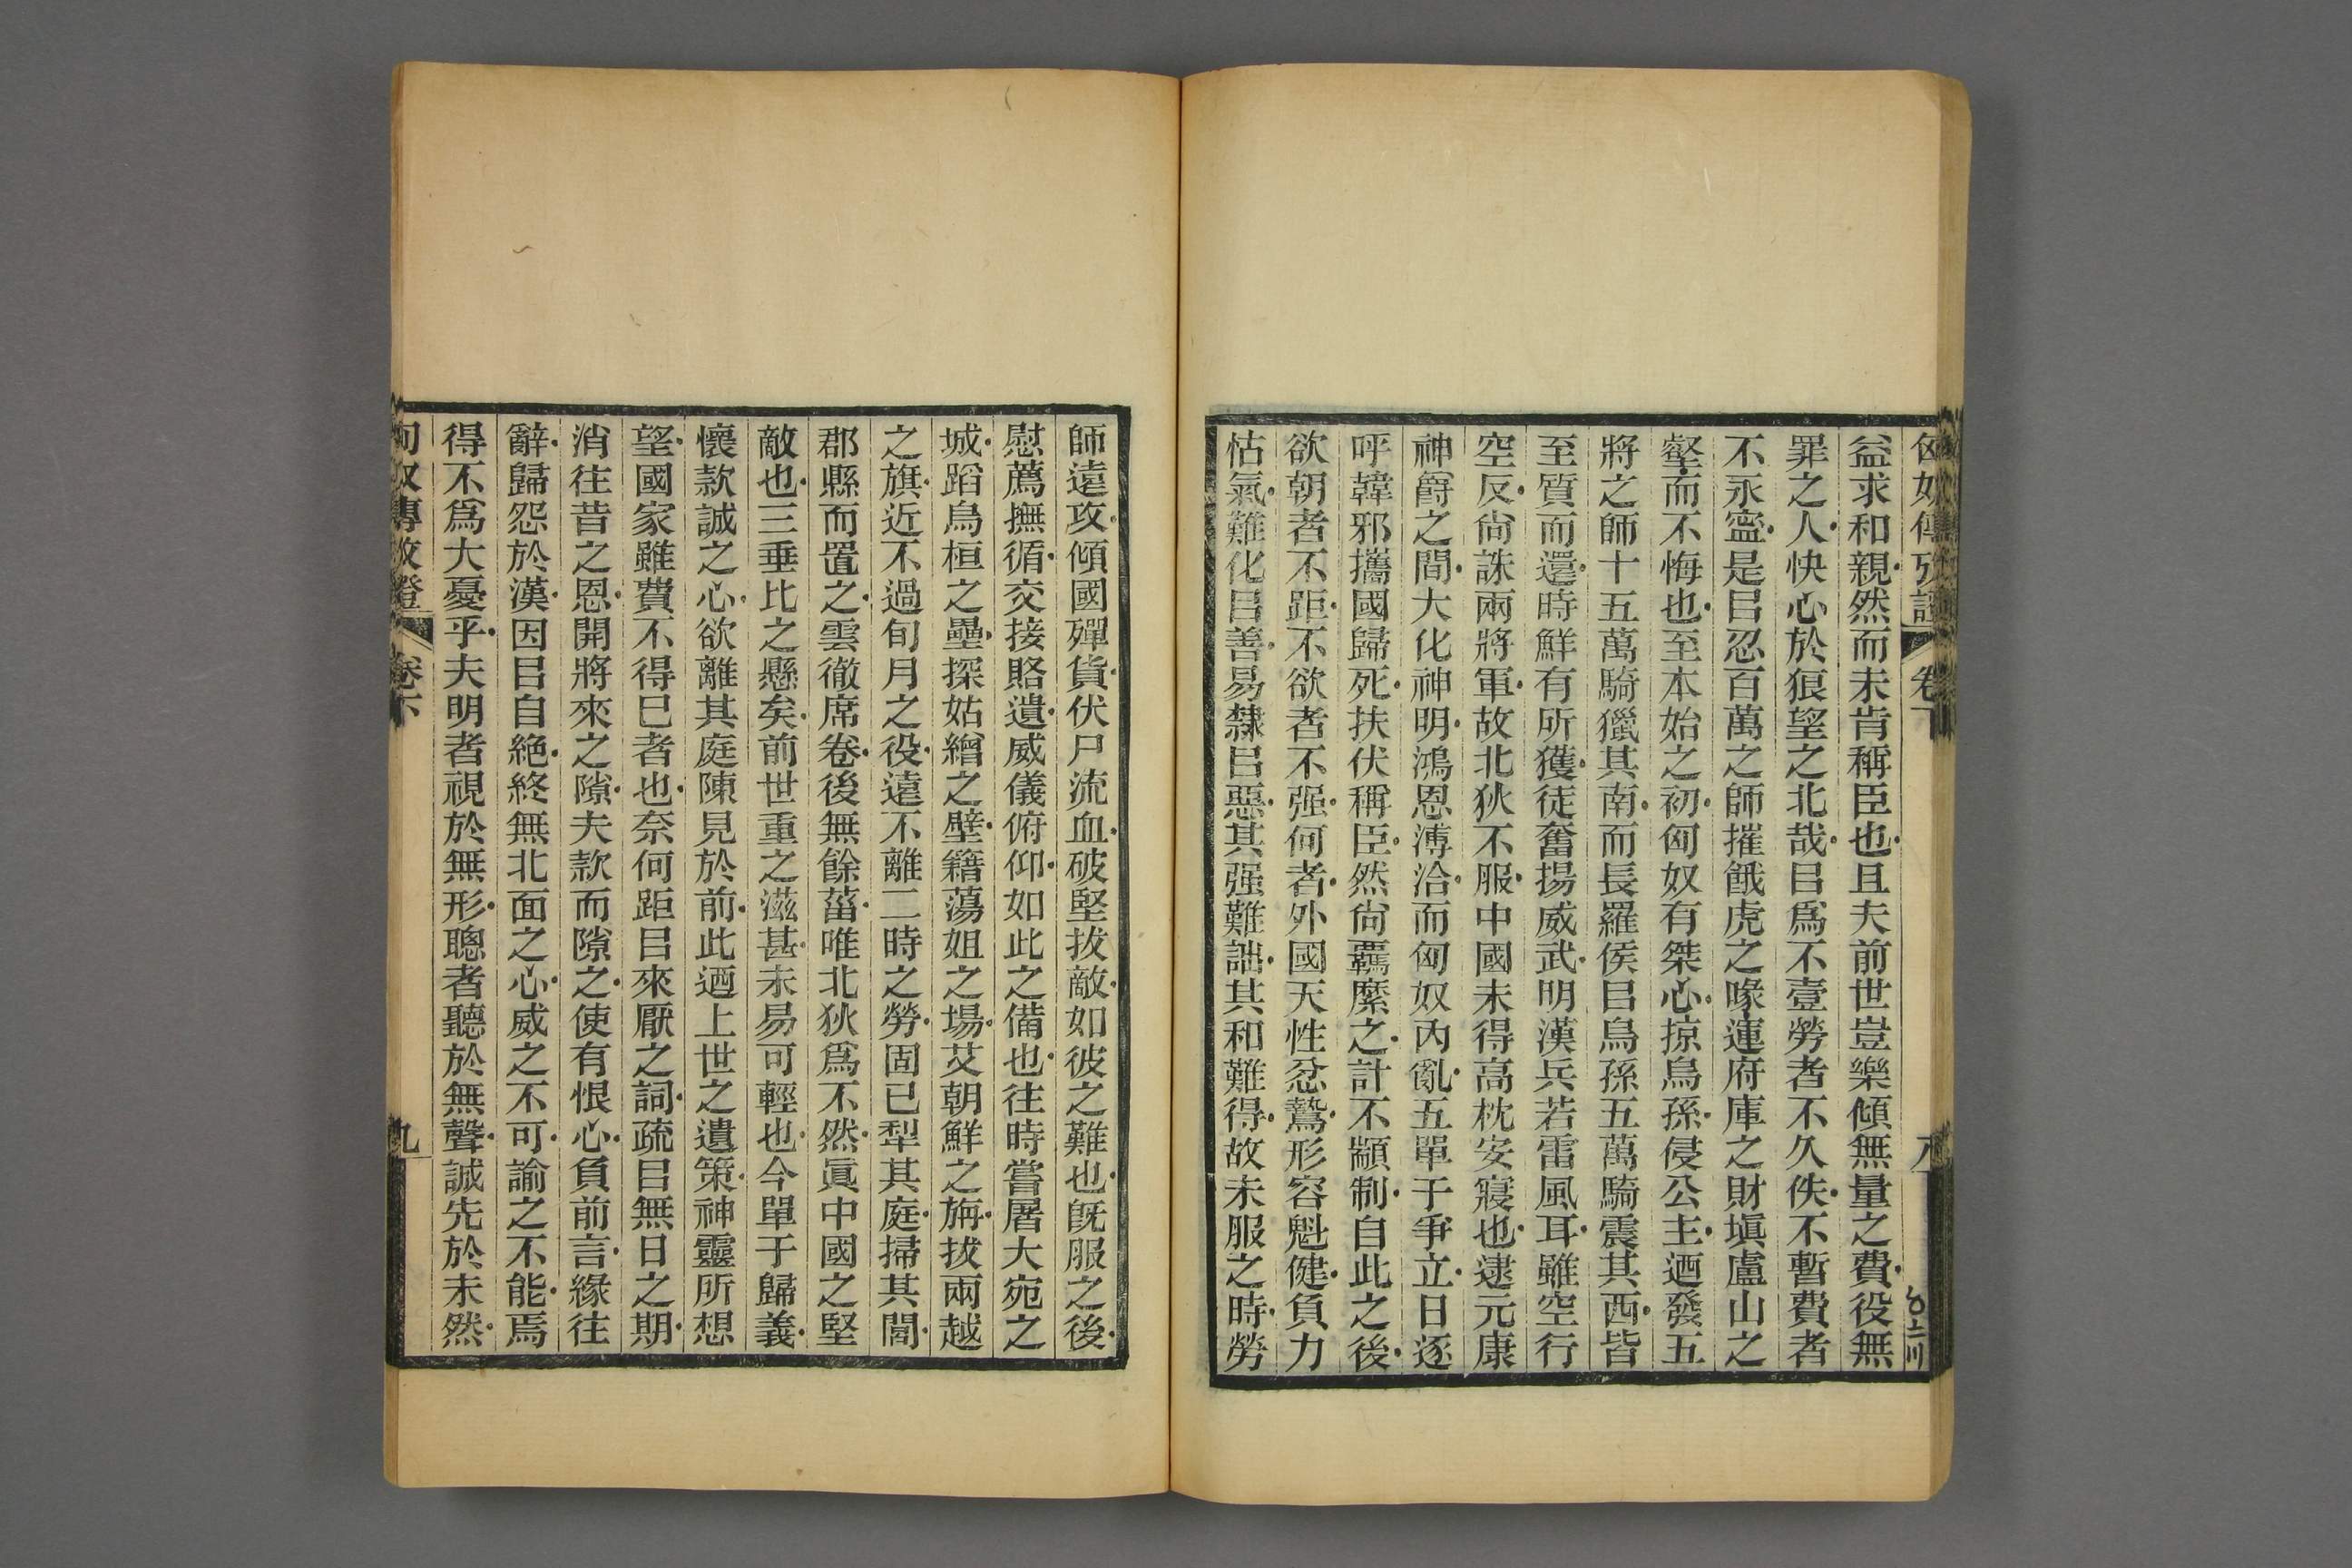 匈奴傳攷證 卷下 八
益求和親然而未肯稱臣也且夫前世豈樂傾無量之費役無
罪之人快心於狼望之北哉㠯爲不壹勞者不久佚不暫費者
不永寍是㠯忍百萬之師摧餓虎之喙運府庫之財塡盧山之
壑而不悔也至本始之初匈奴有桀心掠烏孫侵公主迺發五
將之師十五萬騎獵其南而長羅侯㠯烏孫五萬騎震其西皆
至質而還時鮮有所獲徒奮揚威武明漢兵若雷風耳雖空行
空反尙誅兩將軍故北狄不服中國未得高枕安寢也逮元康
神爵之間大化神明鴻恩溥洽而匈奴內亂五單于爭立日逐
呼韓邪攜國歸死扶伏稱臣然尙羈縻之計不顓制自此之後
欲朝者不距不欲者不强何者外國天性忿鷙形容魁健負力
怙氣難化㠯善易隸㠯惡其强難詘其和難得故未服之時勞
師遠攻傾國殫貨伏尸流血破堅拔敵如彼之難也旣服之後
慰薦撫循交接賂遺威儀俯仰如此之備也往時嘗屠大宛之
城蹈烏桓之壘探姑繒之壁籍蕩姐之場艾朝鮮之旃拔兩越
之旗近不過旬月之役遠不離二時之勞固已犁其庭掃其閭
郡縣而置之雲徹席卷後無餘菑唯北狄爲不然眞中國之堅
敵也三垂比之懸矣前世重之滋甚未易可輕也今單于歸義
懷款誠之心欲離其庭陳見於前此迺上世之遺策神靈所想
望國家雖費不得已者也奈何距㠯來厭之詞疏㠯無日之期
消往昔之恩開將來之隙夫款而隙之使有恨心負前言緣往
辭歸怨於漢因㠯自絶終無北面之心威之不可諭之不能焉
得不爲大憂乎夫明者視於無形聰者聽於無聲誠先於未然
匈奴傳攷證 卷下 九